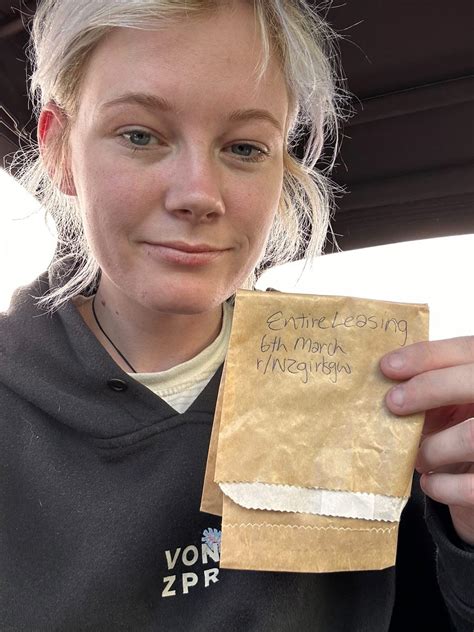 Entire Leasing
6th March
r/NZgirlsgw
VON
ZPR